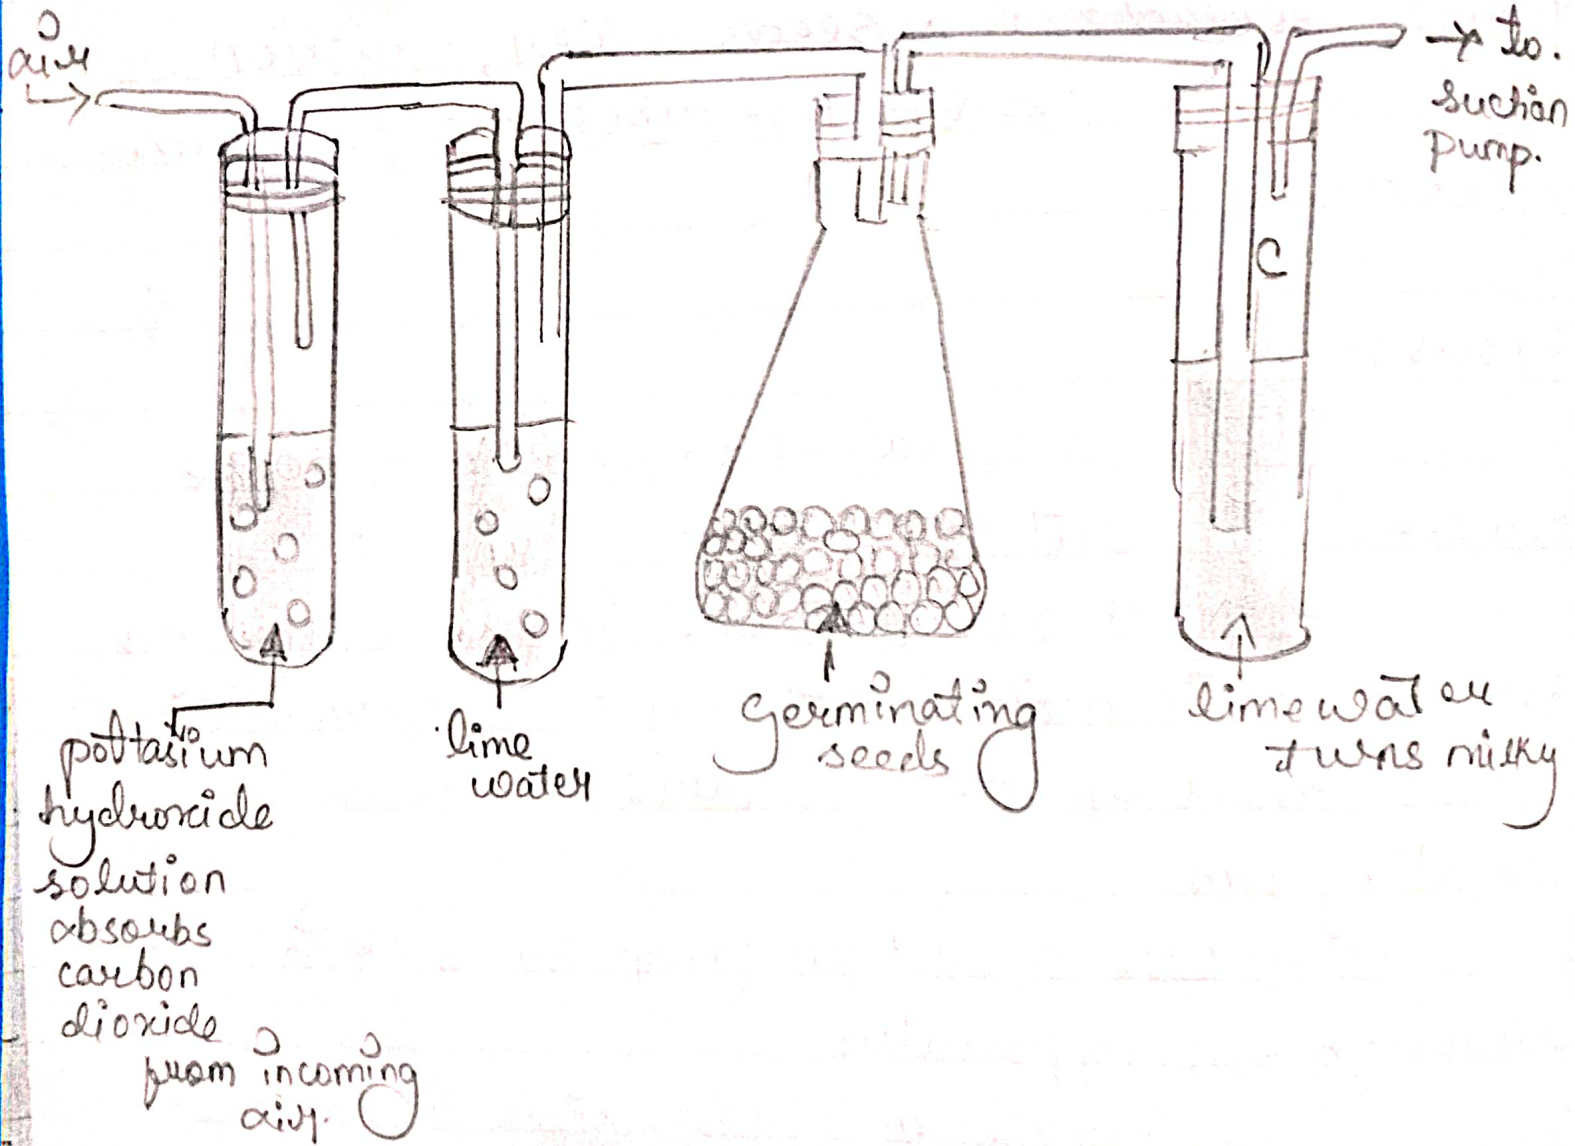 air
→ to.
suction
pump.
C
pottasium
hydroxide
solution
absorbs
carbon
dioxide
from incoming
air.
lime
water
germinating
seeds
limewater
turns milky